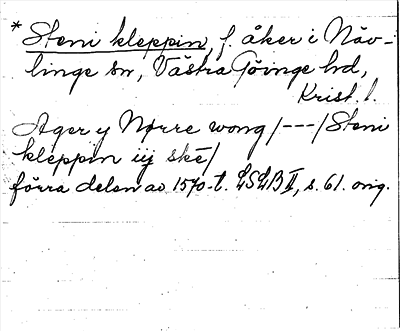 * Steni kleppin, f. åker i Näv-
linge sn, Västra Göinge hd,
Krist. l.
Ager y Nørre wong /---/ Steni
kleppin iij ske/
förra delen av 1570-t. LSLB II, s. 61. orig.